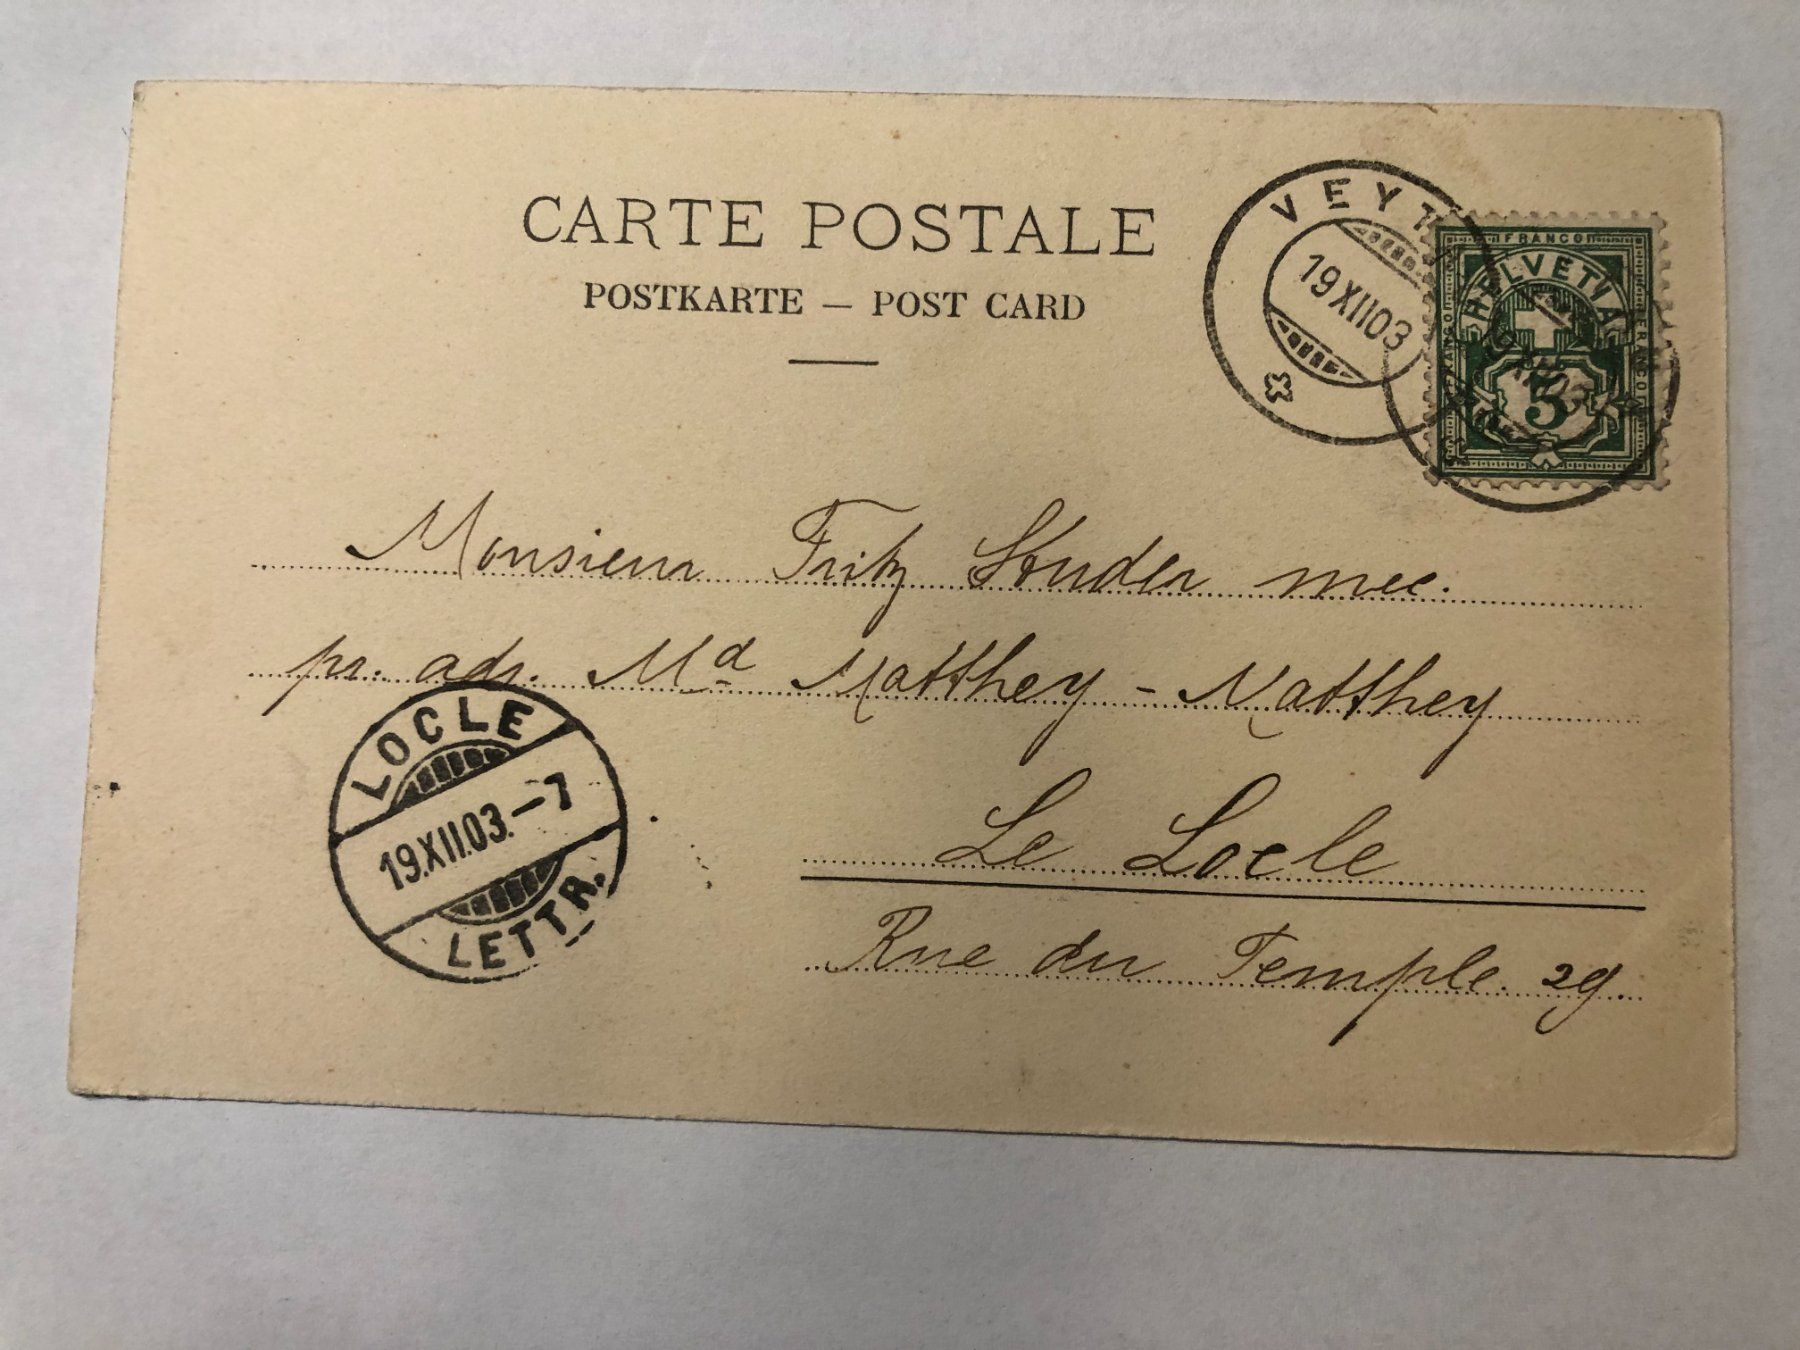 CARTE POSTALE
POSTKARTE — POST CARD
VEYT
19 XII 03
FRANCO
HELVETIA
FRANCO
FRANCO
5
Monsieur Fritz Studer mec.
pr. adr. Md Matthey - Matthey
LOCLE
19.XII.03.-7
LETTR.
Le Locle
Rue du Temple. 29.